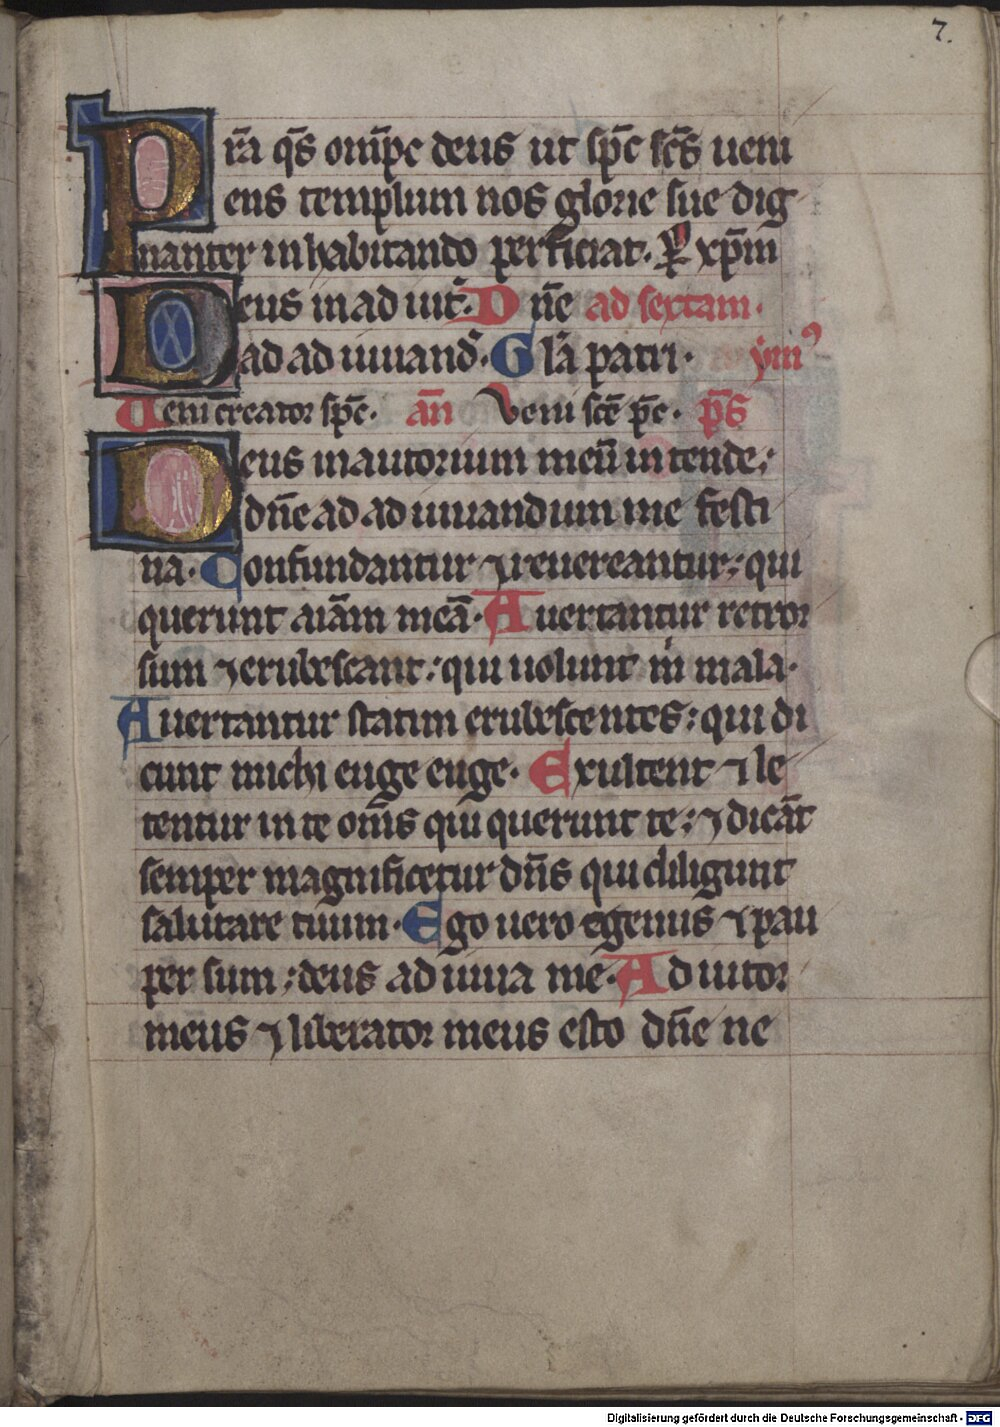 7.
Pr̄a q̄s om̄pc deus ut sp̄c sc̄s ueni
ens templum nos glorie sue dig
nanter inhabitando perficiat. P̱ xp̄m
Deus in ad uit̄. Dn̄e ad sextam.
Dad ad iuuand̄. Gl̄a patri. ymꝰ
Ueni creator sp̄c. an̄ Veni sc̄e p̄c. p̄s
Deus in aiutorium meū intende;
dn̄e ad ad iuuandum me festi
na. Confundantur ⁊ reuereantur; qui
querunt aiām meā. Auertantur retror
sum ⁊ erubescant; qui uolunt m̄ mala.
Auertantur statim erubescentes; qui di
cunt michi euge euge. Exultent ⁊ le
tentur in te om̄s qui querunt te; ⁊ dicāt
semper magnificetur dn̄s qui diligunt
salutare tuum. Ego uero egenus ⁊ pau
per sum; deus ad iuua me. Ad iutor
meus ⁊ liberator meus esto dn̄e ne
Digitalisierung gefördert durch die Deutsche Forschungsgemeinschaft - DFG